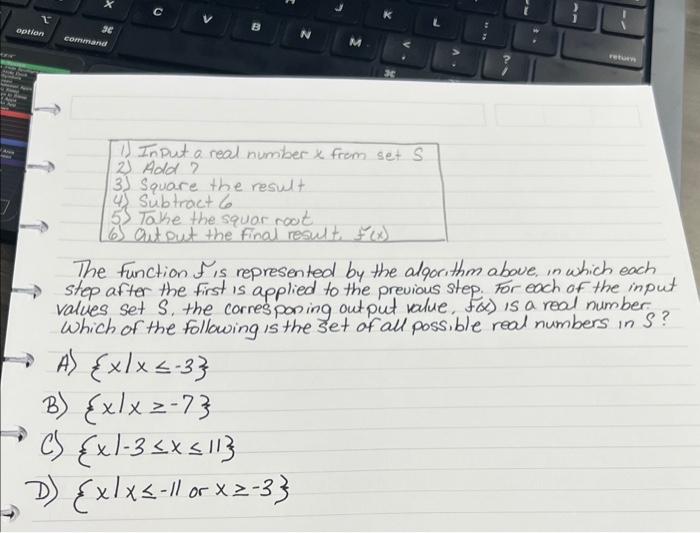 C
V
B
N
M
J
K
L
option
command
return
1) Input a real number x from set S
2) Add 7
3) Square the result
4) Subtract 6
5) Take the squar root
6) Output the final result, f(x)
The function f is represented by the algorithm above, in which each
step after the first is applied to the previous step. For each of the input
values set S, the corresponing output value, f(x) is a real number.
Which of the following is the set of all possible real numbers in S?
A) {x|x ≤ -3}
B) {x|x ≥ -7}
C) {x|-3 ≤ x ≤ 11}
D) {x|x ≤ -11 or x ≥ -3}